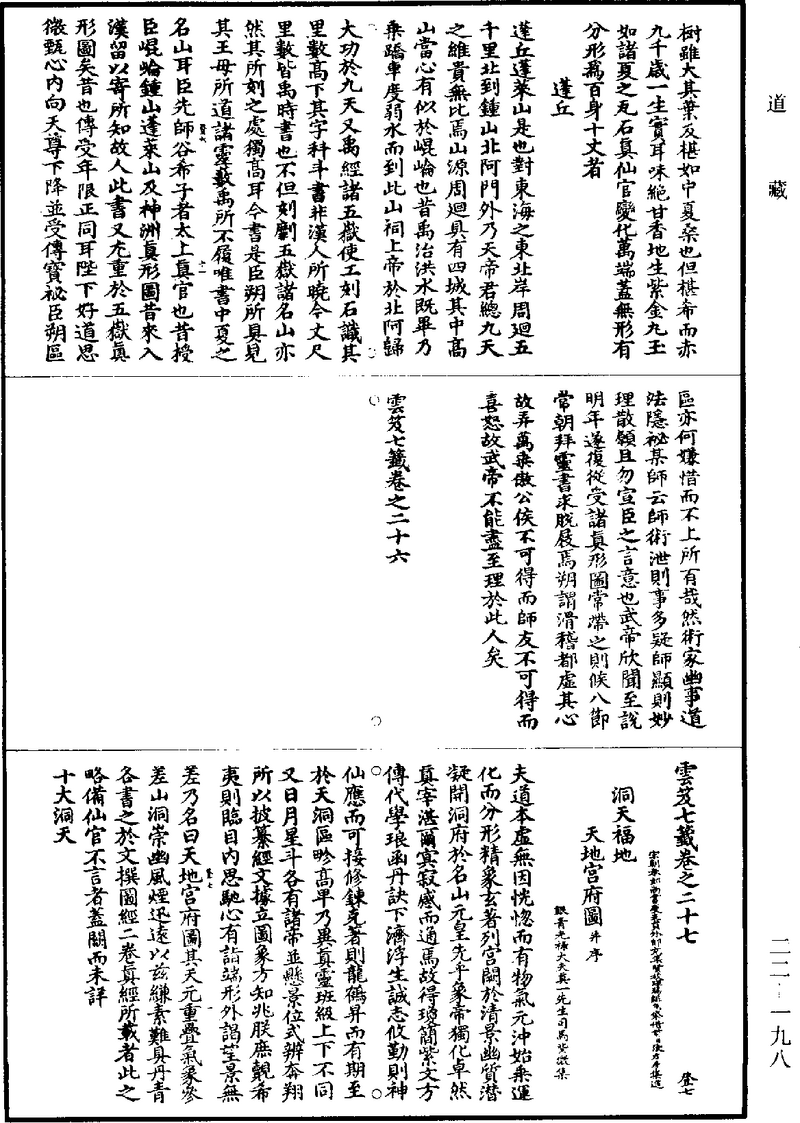 道藏
樹雖大其葉及椹如中夏桑也但椹希而赤
九千歲一生實耳味絕甘香地生紫金九玉
如諸夏之瓦石真仙官變化萬端蓋無形有
分形爲百身十丈者
蓬丘
蓬丘蓬萊山是也對東海之東北岸周迴五
千里北到鍾山北阿門外乃天帝君總九天
之維貴無比焉山源周迴具有四城其中高
山當心有似於崐崘也昔禹治洪水旣畢乃
乘蹻車度弱水而到此山祠上帝於北阿歸
大功於九天又禹經諸五嶽使工刻石識其
里數高下其字科斗書非漢人所曉今丈尺
里數皆禹時書也不但刻劚五嶽諸名山亦
然其所刻之處獨高耳今書是臣朔所具見
其王母所道諸靈藪禹所不履唯書中夏之
名山耳臣先師谷希子者太上真官也昔授
臣崐崘鍾山蓬萊山及神洲真形圖昔來入
漢留以寄所知故人此書又尤重於五嶽真
形圖矣昔也傳受年限正同耳陛下好道思
微甄心內向天尊下降並受傳寶祕臣朔區
區亦何嫌惜而不上所有哉然術家幽事道
法隱祕某師云師術泄則事多疑師顯則妙
理散願且勿宣臣之言意也武帝欣聞至說
明年遂復從受諸真形圖常帶之則候八節
常朝拜靈書求脫屐焉朔謂滑稽都虛其心
故弄萬乘傲公侯不可得而師友不可得而
喜怒故武帝不能盡至理於此人矣
雲笈七籤卷之二十六
雲笈七籤卷之二十七
洞天福地
天地宮府圖并序
銀青光祿大夫真一先生司馬紫微集
夫道本虛無因恍惚而有物氣元沖始乘運
化而分形精象玄著列宮闕於清景幽質潛
凝開洞府於名山元皇先乎象帝獨化卓然
真宰湛爾冥寂感而通焉故得瓊簡紫文方
傳代學琅函丹訣下濟浮生誠志攸勤則神
仙應而可接修鍊克著則龍鶴昇而有期至
於天洞區畛高卑乃異真靈班級上下不同
又日月星斗各有諸帝並懸景位式辨奔翔
所以披纂經文據立圖象方知兆朕庶覿希
夷則臨目內思馳心有詣端形外謁望景無
差乃名曰天地宮府圖其天元重疊氣象參
差山洞崇幽風煙迅遠以茲縑素難具丹青
各書之於文撰圖經二卷真經所載者此之
略備仙官不言者蓋闕而未詳
十大洞天
二二-一九八